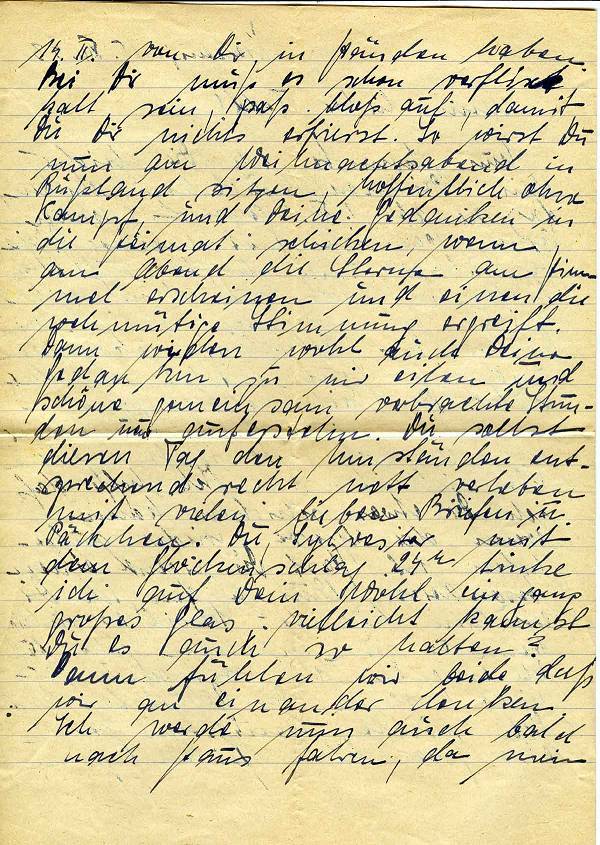 14. II. von Dir in Händen haben.
Bei Dir muß es schon verflixt
kalt sein, paß bloß auf, damit
Du Dir nichts erfrierst. So wirst Du
nun am Weihnachtsabend in
Rußland sitzen, hoffentlich ohne
Kampf, und Deine Gedanken in
die Heimat schicken, wenn
am Abend die Sterne am Him-
mel erscheinen und einen die
wehmütige Stimmung ergreift.
Dann werden wohl auch Deine
Gedanken zu mir eilen und
schöne gemeinsam verbrachte Stun-
den neu auferstehn. Du sollst
diesen Tag den Umständen ent-
sprechend recht nett verleben
mit vielen lieben Briefen u.
Päckchen. Du, Sylvester mit
dem Glockenschlag 24 Uhr trinke
ich auf Dein Wohl ein ganz
großes Glas. vielleicht kannst
Du es auch so halten?
Dann fühlen wir beide daß
wir an einander denken.
Ich werde nun auch bald
nach Haus fahren, da mein